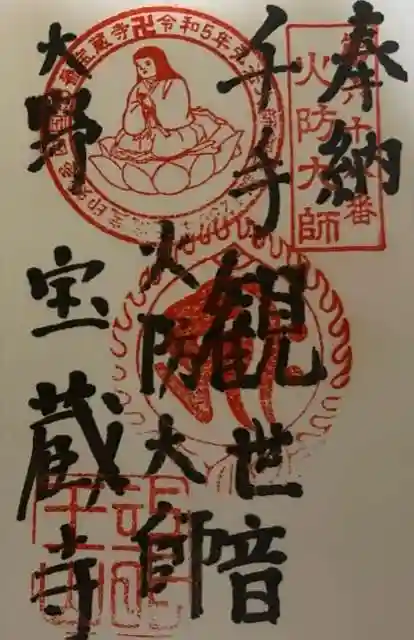 奉納
千手観世音
火防大師
大野
宝蔵寺
火防大師
番
宝蔵寺卍令和5年